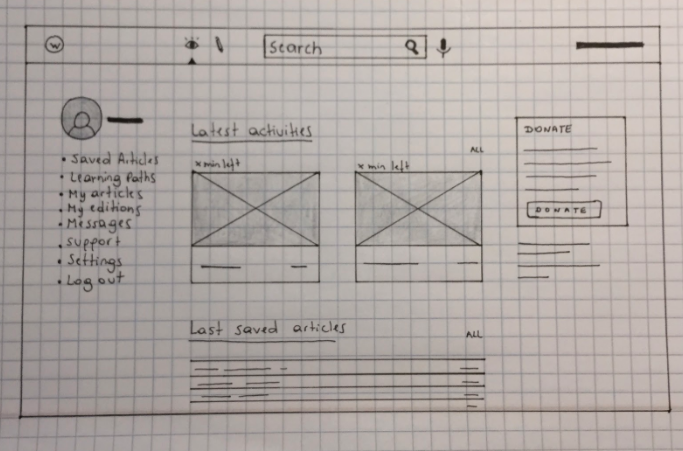 W
Search
Saved Articles
Learning Paths
My articles
My editions
Messages
Support
Settings
Log out
Latest activities
ALL
x min left
x min left
Last saved articles
ALL
DONATE
DONATE